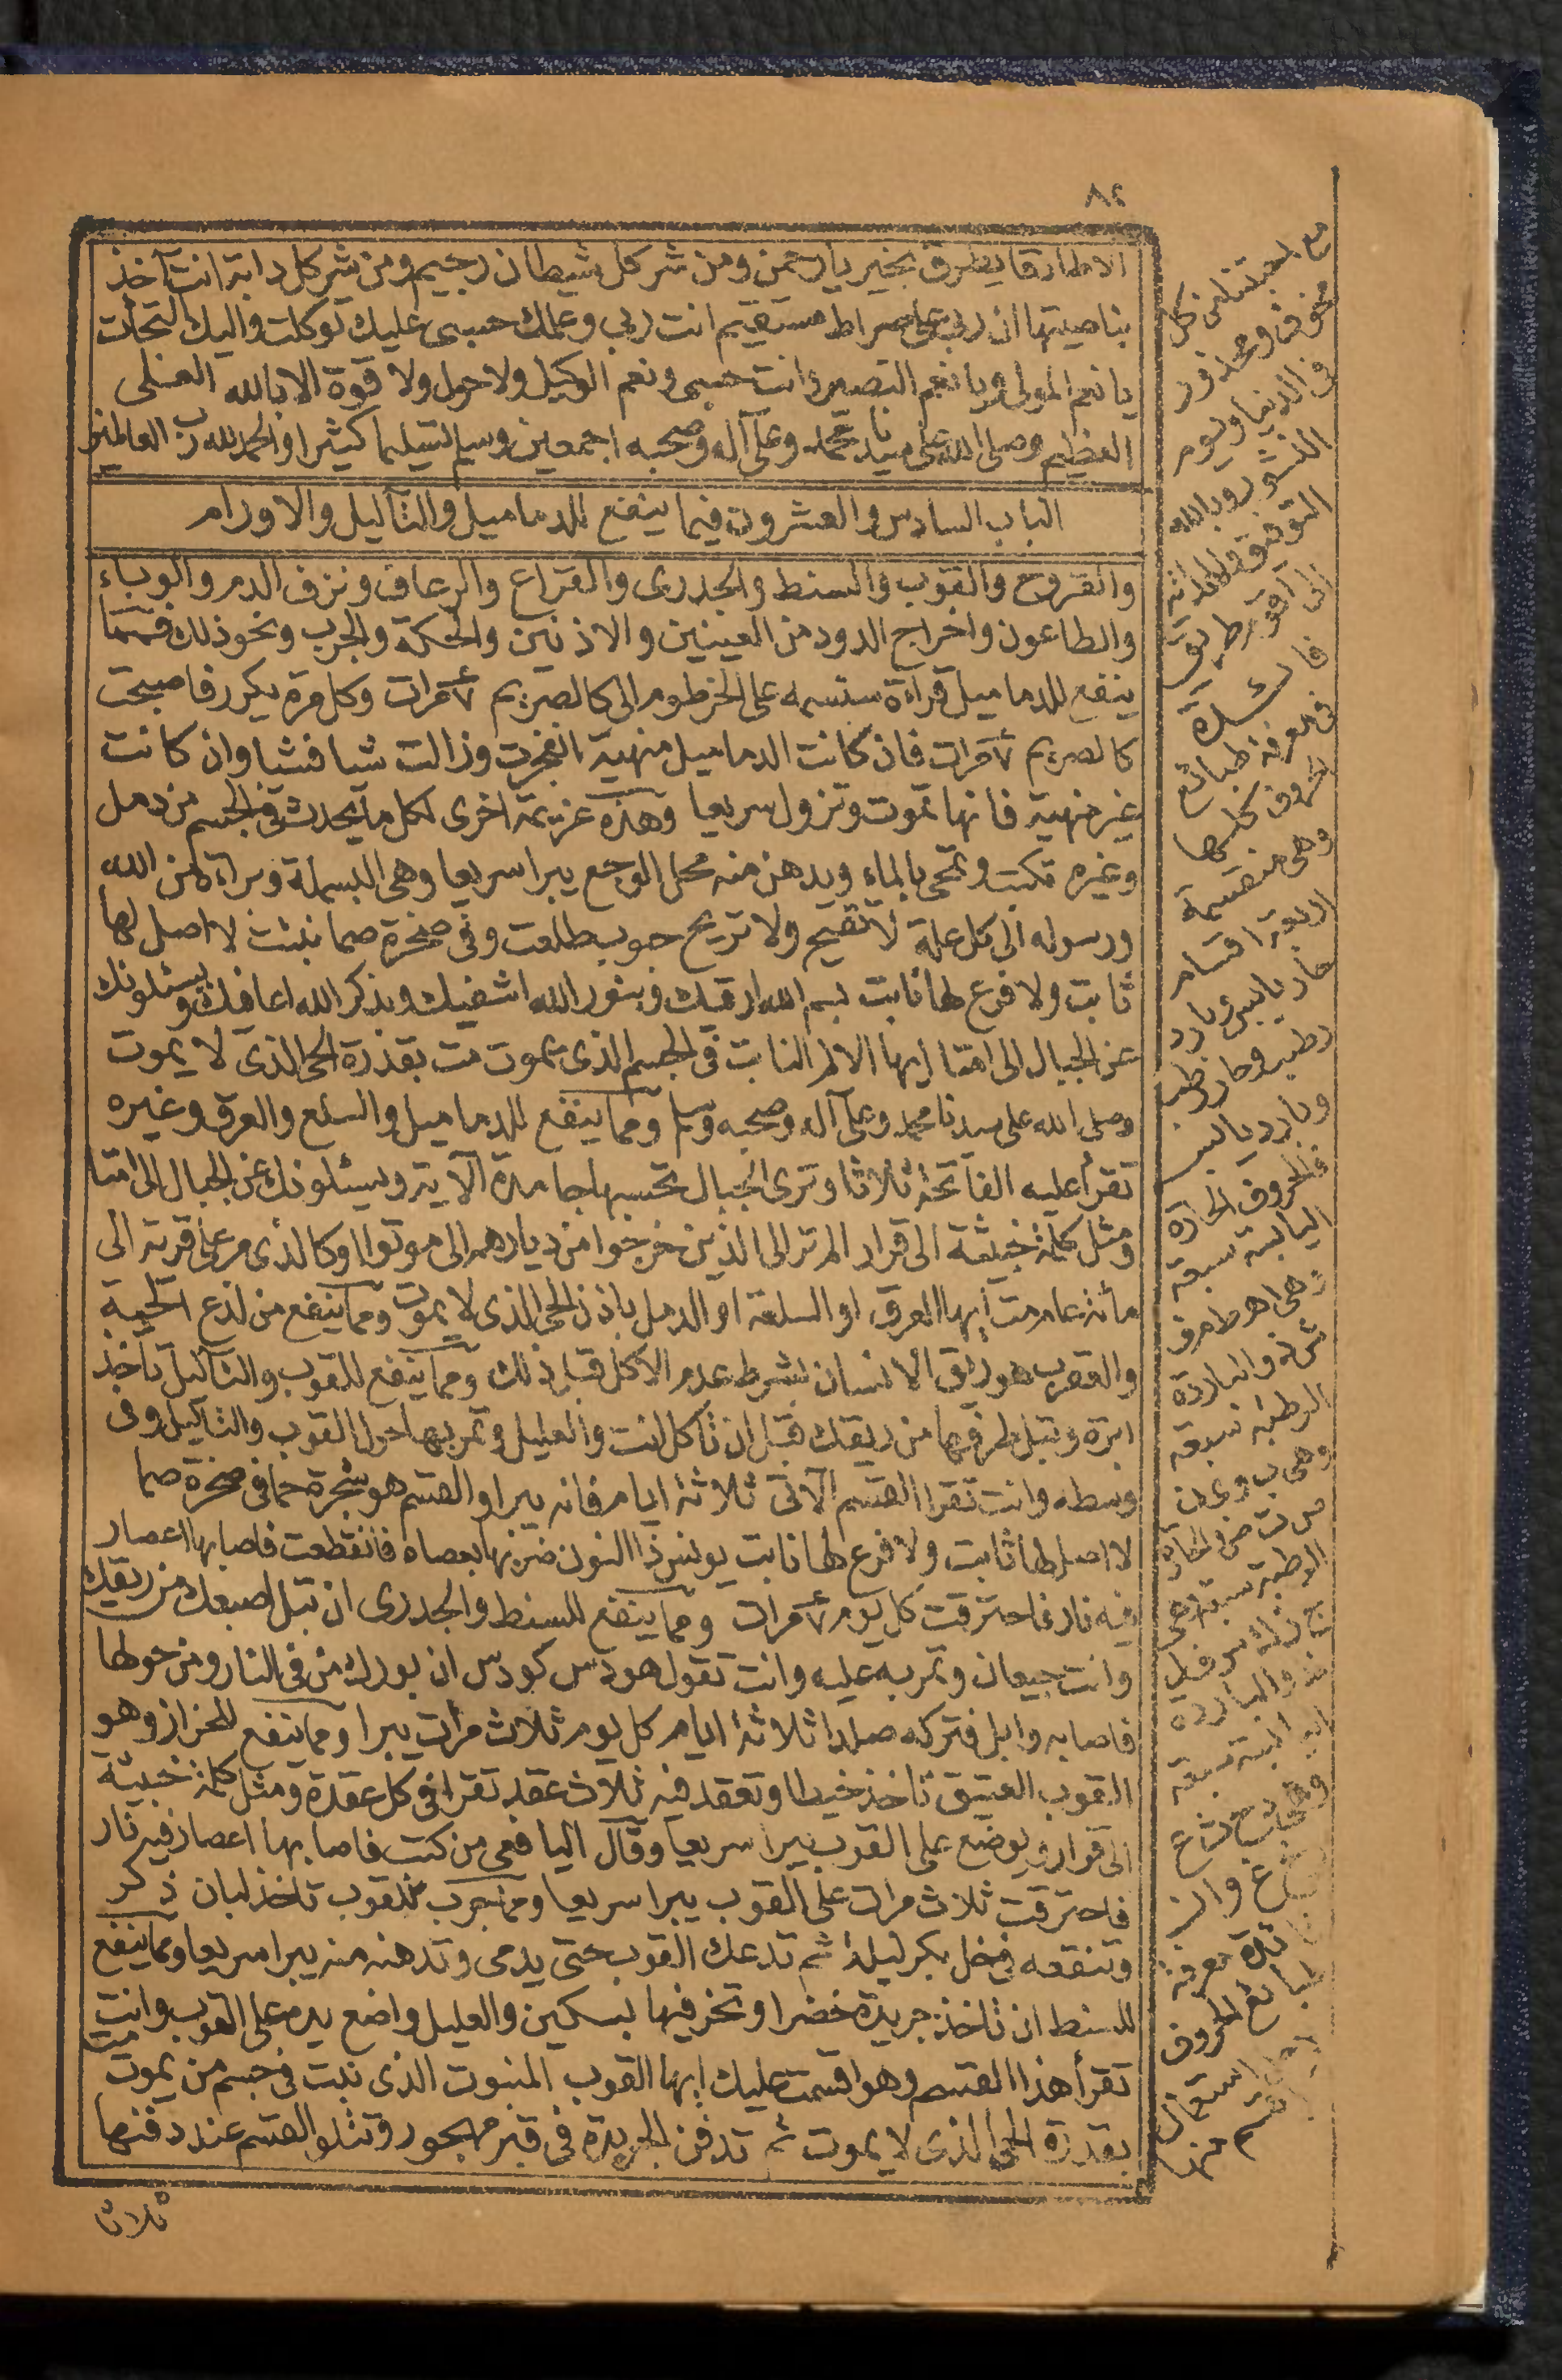 ٨٢
الاطارقا يطرق بخير يارحمن ومن شر كل شيطان رجيم ومن شر كل دابة انت آخذ
بناصيتها ان ربى على صراط مستقيم انت ربى وعملك حسبى عليك توكلت واليك التجأت
يا نعم المولى ويا نعم النصير وانت حسبى ونعم الوكيل ولا حول ولا قوة الا بالله العلى
العظيم وصلى الله على سيدنا محمد وعلى آله وصحبه اجمعين وسلم تسليما كثيرا والحمد لله رب العالمين
الباب السادس والعشرون فيما ينفع للدماميل والثآليل والاورام
والقروح والقوب والسنط والجدرى والقراع والرعاف ونزف الدم والوباء
والطاعون واخراج الدود من العينين والاذنين والحكة والجرب ونحو ذلك فمما
ينفع للدماميل قراءة سنسمه على الخرطوم الى كالصريم ٧ مرات وكل مرة يكرر فاصبحت
كالصريم ٧ مرات فان كانت الدماميل منهية انفجرت وزالت شيا فشيا وان كانت
غير منهية فانها تموت وتزول سريعا وهذه عزيمة اخرى لكل ما يحدث فى الجسم من دمل
وغيره تكتب وتمحى بالماء ويدهن منه محل الوجع يبرا سريعا وهى البسملة وبراءة من الله
ورسوله الى كل علة لا تقيح ولا تريح حوب طلعت وفى صخرة صما نبتت لا اصل لها
ثابت ولا فرع لها نابت بسم الله ارقيك وبنور الله اشفيك وبذكر الله اعافيك ويسئلونك
عن الجبال الى امتا ايها الالم النابت فى الجسم الذى يموت مت بقدرة الحى الذى لا يموت
وصلى الله على سيدنا محمد وعلى آله وصحبه وسلم ومما ينفع للدماميل والسلع والعرق وغيره
تقرأ عليه الفاتحة ثلاثا وترى الجبال تحسبها جامدة الآية ويسئلونك عن الجبال الى امتا
ومثل كلمة خبيثة الى قرار الم تر الى الذين خرجوا من ديارهم الى موتوا او كالذى مر على قرية الى
مائة عام مت ايها العرق او السلعة او الدمل باذن الحى الذى لا يموت ومما ينفع من لدغ الحية
والعقرب هو ريق الانسان بشرط عدم الاكل قبل ذلك ومما ينفع للقوب والثآليل تاخذ
ابرة وتبل طرفها من ريقك قبل ان تأكل انت والعليل وتمر بها حول القوب والثآليل وفى
وسطه وانت تقرا القسم الآتى ثلاثة ايام فانه يبرا والقسم هو شجرة حما فى صخرة صما
لا اصل لها ثابت ولا فرع لها نابت يونس ذا النون ضربها بعصاه فانقطعت فاصابها اعصار
فيه نار فاحترقت كل يوم ٧ مرات ومما ينفع للسنط والجدرى ان تبل اصبعك من ريقك
وانت جيعان وتمر به عليه وانت تقول هودس كودس ان بورك من فى النار ومن حولها
فاصابه وابل فتركه صلدا ثلاثة ايام كل يوم ثلاث مرات يبرا ومما ينفع للحزاز وهو
القوب العتيق تاخذ خيطا وتعقد فيه ثلاث عقد تقرا فى كل عقدة ومثل كلمة خبيثة
الى قرار ويوضع على القوب يبرا سريعا وقال اليافعى من كتب فاصابها اعصار فيه نار
فاحترقت ثلاث مرات على القوب يبرا سريعا ومما جرب للقوب تاخذ لبان ذكر
وتنقعه فى خل بكر ليلة ثم تدعك القوب حتى يدمى وتدهنه منه يبرا سريعا ومما ينفع
للسنط ان تاخذ جريدة خضرا وتخز فيها بسكين والعليل واضع يده على القوب وانت
تقرأ هذا القسم وهو اقسمت عليك ايها القوب المنبوت الذى نبت فى جسم من يموت مت
بقدرة الحى الذى لا يموت ثم تدفن الجريدة فى قبر مهجور وتتلو القسم عند دفنها
ثلاثا
كل
مخوف ومحذور
فى الدنيا ويوم
النشور وبالله
التوفيق والهداية
الى اقوم طريق
فائدة
فى معرفة طبائع
الحروف كلها
وهى منقسمة
اربعة اقسام
حار يابس وبارد
رطب وحار رطب
وبارد يابس
فالحروف الحارة
اليابسة سبعة
وهى اهطم ف
ش ذ والباردة
الرطبة سبعة
وهى ب وى ن
ص ت ض والحارة
الرطبة سبعة وهى
ج ز ك س ق
والباردة
اليابسة سبعة
معرفة
طبائع الحروف
استعمال
قسم منها